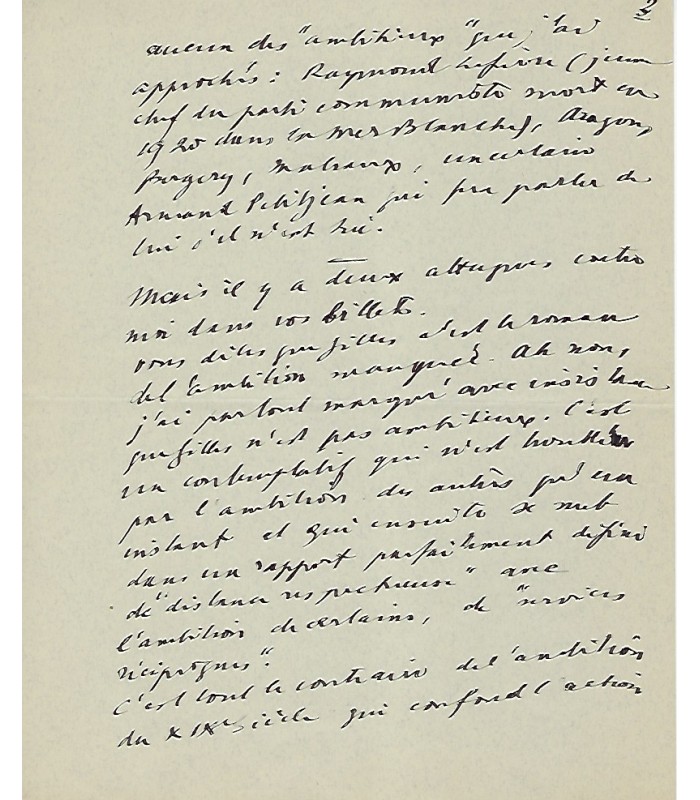 2
aucun des "ambitieux" que j'ai
approchés : Raymond Lefèvre (jeune
chef du parti communiste mort en
1920 dans la Mer Blanche), Aragon,
Bergery, Malraux, un certain
Armand Petitjean qui fera parler de
lui s'il n'est tué.
Mais il y a deux attaques contre
moi dans vos billets.
vous dites que Gilles c'est le roman
de l'ambition manquée. Ah non,
j'ai partout marqué avec insistance
que Gilles n'est pas ambitieux. C'est
un contemplatif qui n'est
par l'ambition des autres qu'un
instant et qui ensuite se met
dans un rapport parfaitement défini
de "distance respectueuse" avec
l'ambition de certains, de "services
réciproques".
C'est tout le contraire de l'ambition
du XIXe siècle qui confond l'action